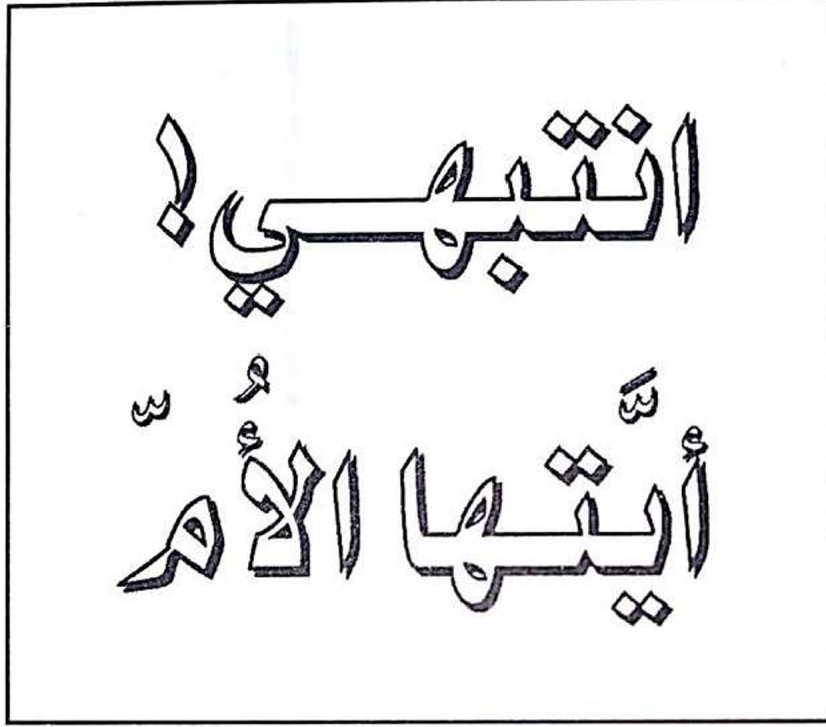 انتبهي!
أيَّتها الأُمّ